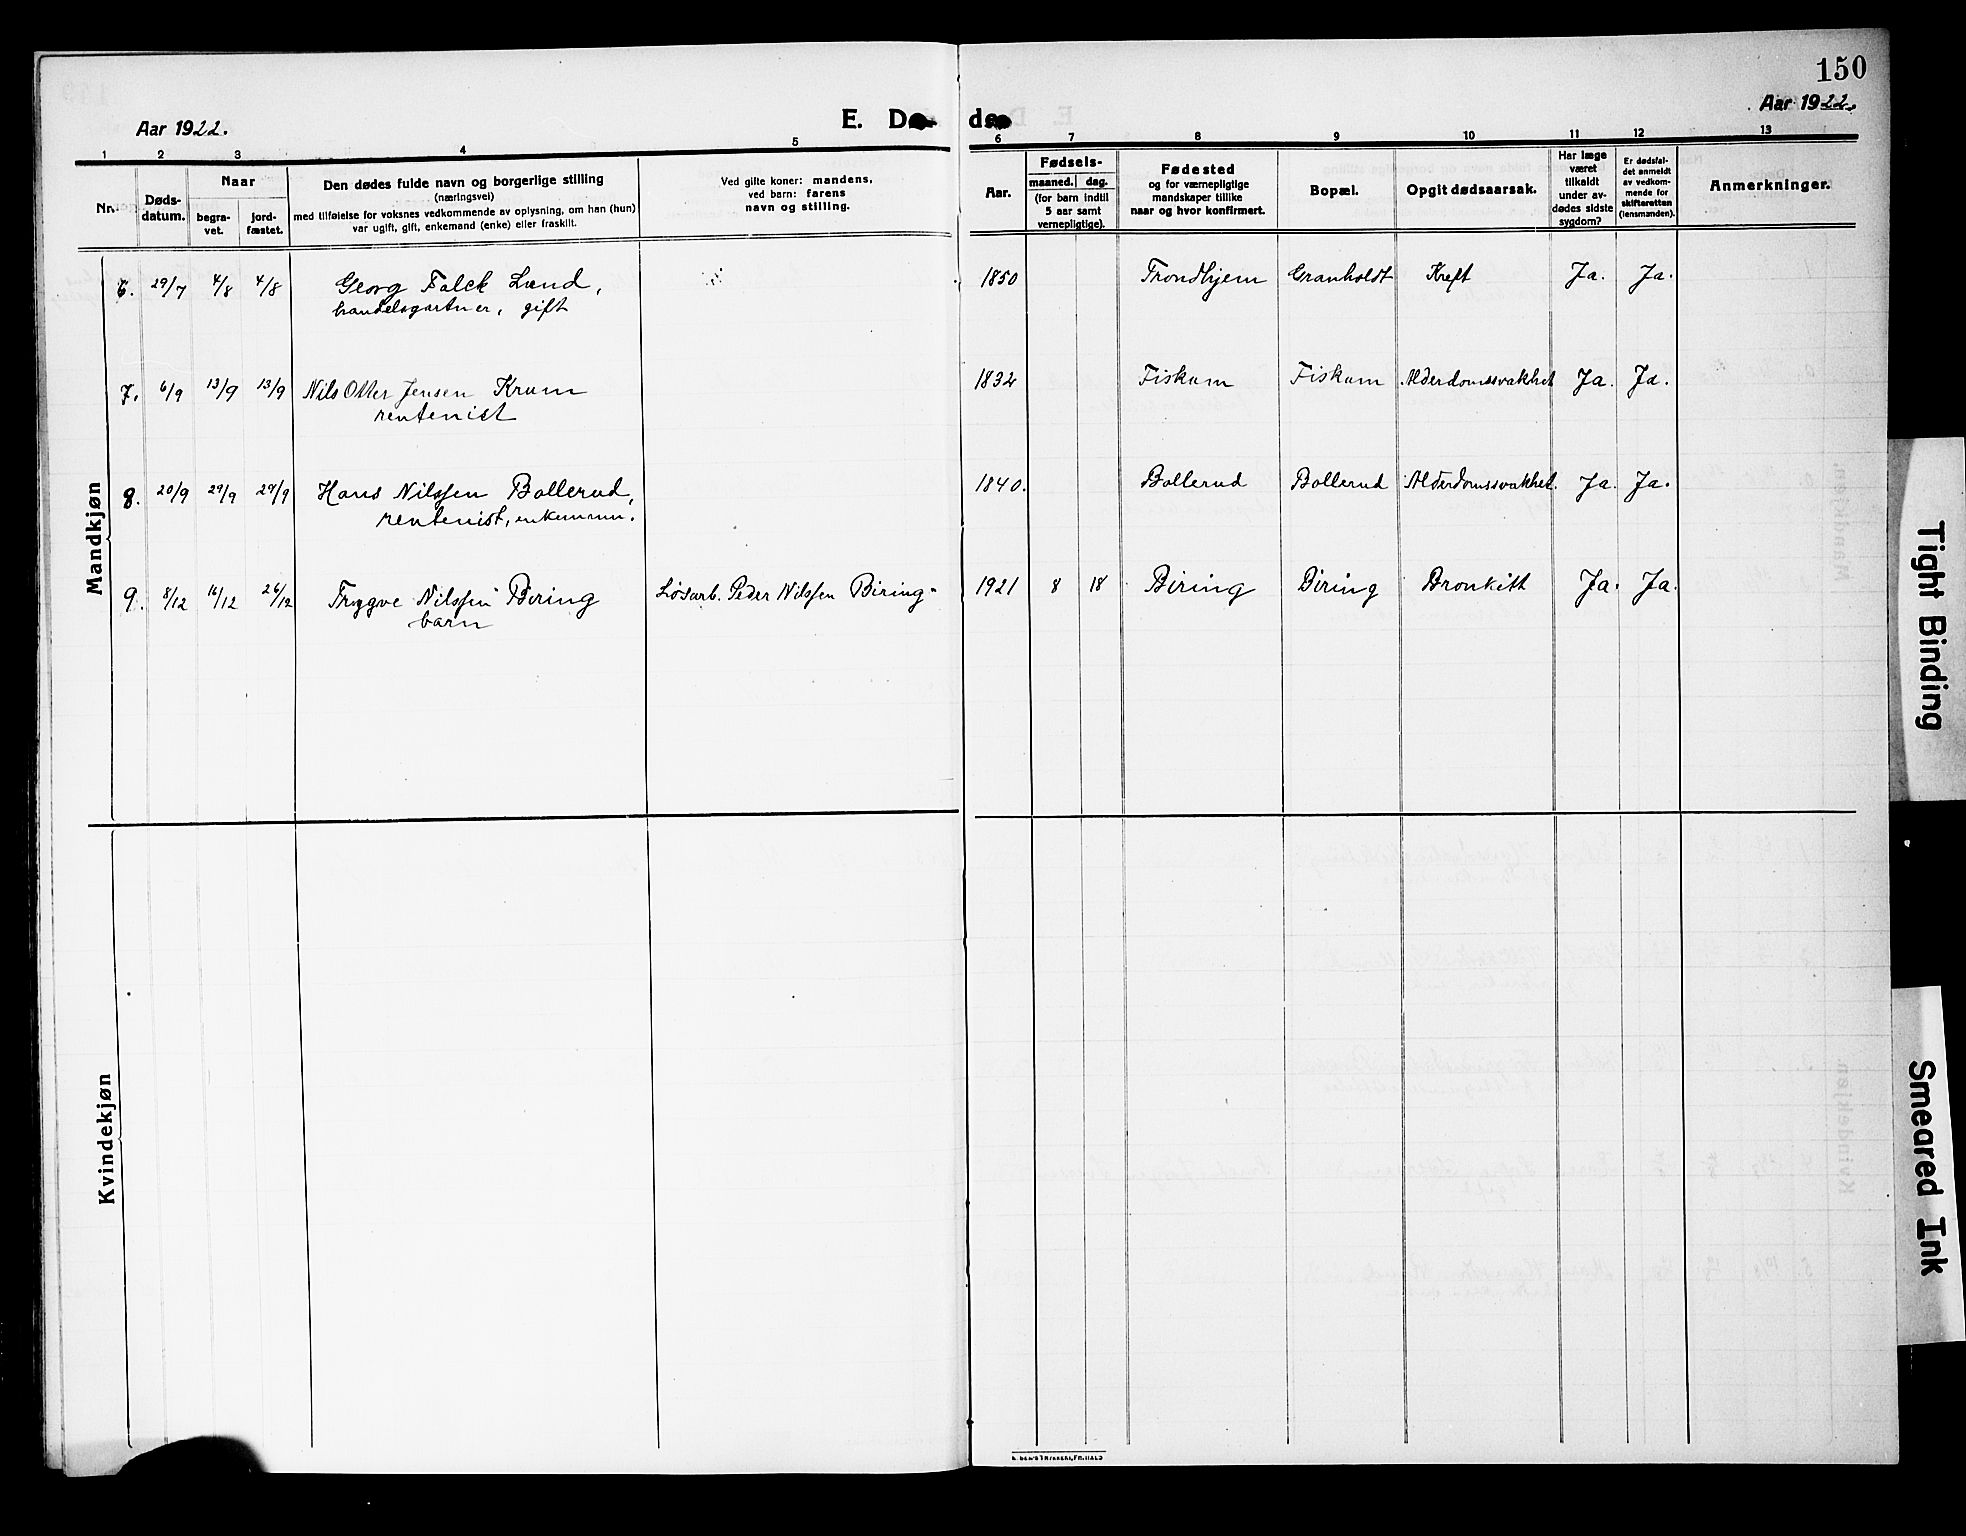 150
Aar 1922.
E. Døde
Aar 1922.
1 2 3 4 5 6 7 8 9 10 11 12 13
Nr.
Døds-
datum.
Naar
begra-
vet.
jord-
fæstet.
Den dødes fulde navn og borgerlige stilling
(næringsvei)
med tilføielse for voksnes vedkommende av oplysning, om han (hun)
var ugift, gift, enkemand (enke) eller fraskilt.
Ved gifte koner: mandens,
ved barn: farens
navn og stilling.
Aar.
Fødsels-
maaned. dag.
(for barn indtil
5 aar samt
vernepligtige).
Fødested
og for værnepligtige
mandskaper tillike
naar og hvor konfirmert.
Bopæl.
Opgit dødsaarsak.
Har læge
været
tilkaldt
under av-
dødes sidste
sygdom?
Er dødsfal-
det anmeldt
av vedkom-
mende for
skifteretten
(lensmanden).
Anmerkninger.
Mandkjøn
6. 29/7 4/8 4/8 Georg Falck Lund, 1850 Trondhjem Granholdt Kreft Ja. Ja.
handelsgartner, gift
7. 6/9 13/9 13/9 Nils Otter Jensen Krum 1832 Fiskum Fiskum Alderdomssvakhet Ja. Ja.
rentenist
8. 20/9 29/9 29/9 Hans Nilssen Bollerud, 1840. Bollerud Bollerud Alderdomssvakhet. Ja. Ja.
rentenist, enkemann.
9. 8/12 16/12 26/12 Trygve Nilssen Biring Løsarb. Peder Nilssen Biring 1921 8 18 Biring Biring Bronkitt Ja. Ja.
barn
Kvindekjøn
Tight Binding
Smeared Ink